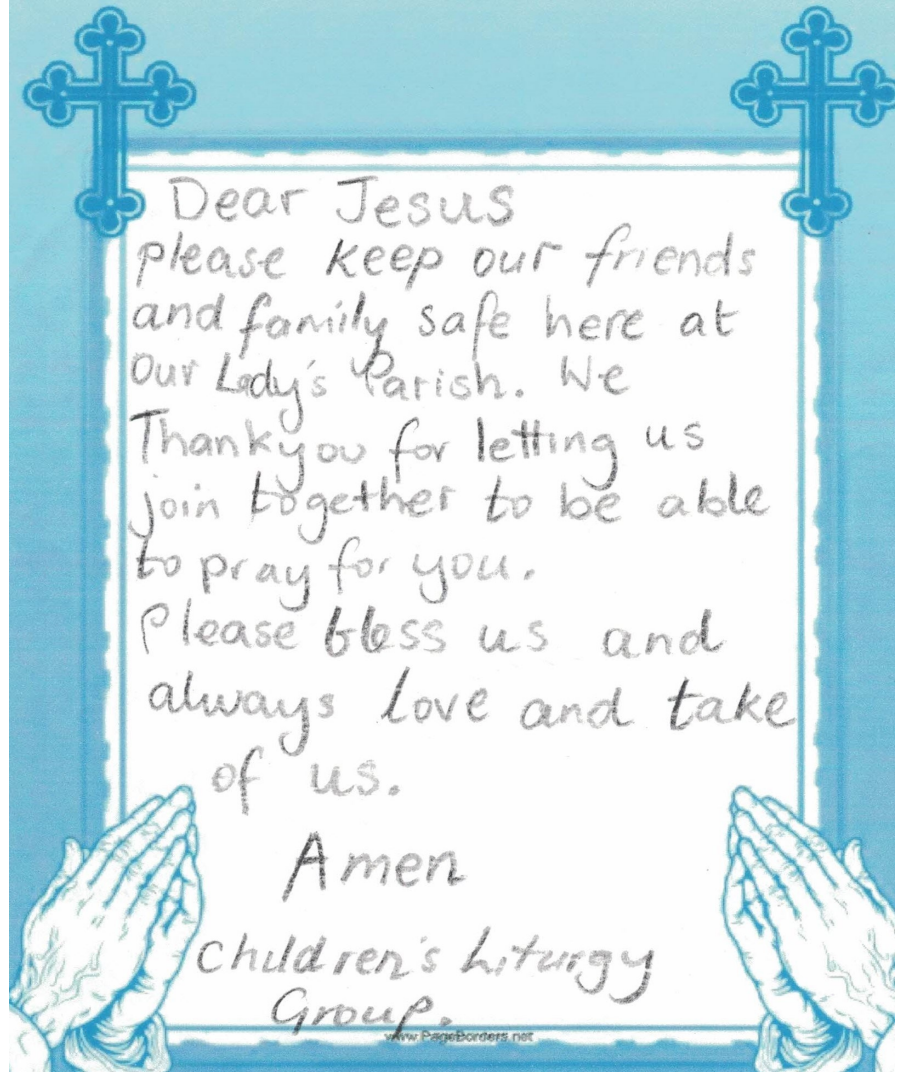 Dear Jesus
please keep our friends
and family safe here at
Our Lady's Parish. We
Thankyou for letting us
join together to be able
to pray for you.
Please bless us and
always love and take
of us.
Amen
Children's Liturgy
Group.
www.PageBorders.net